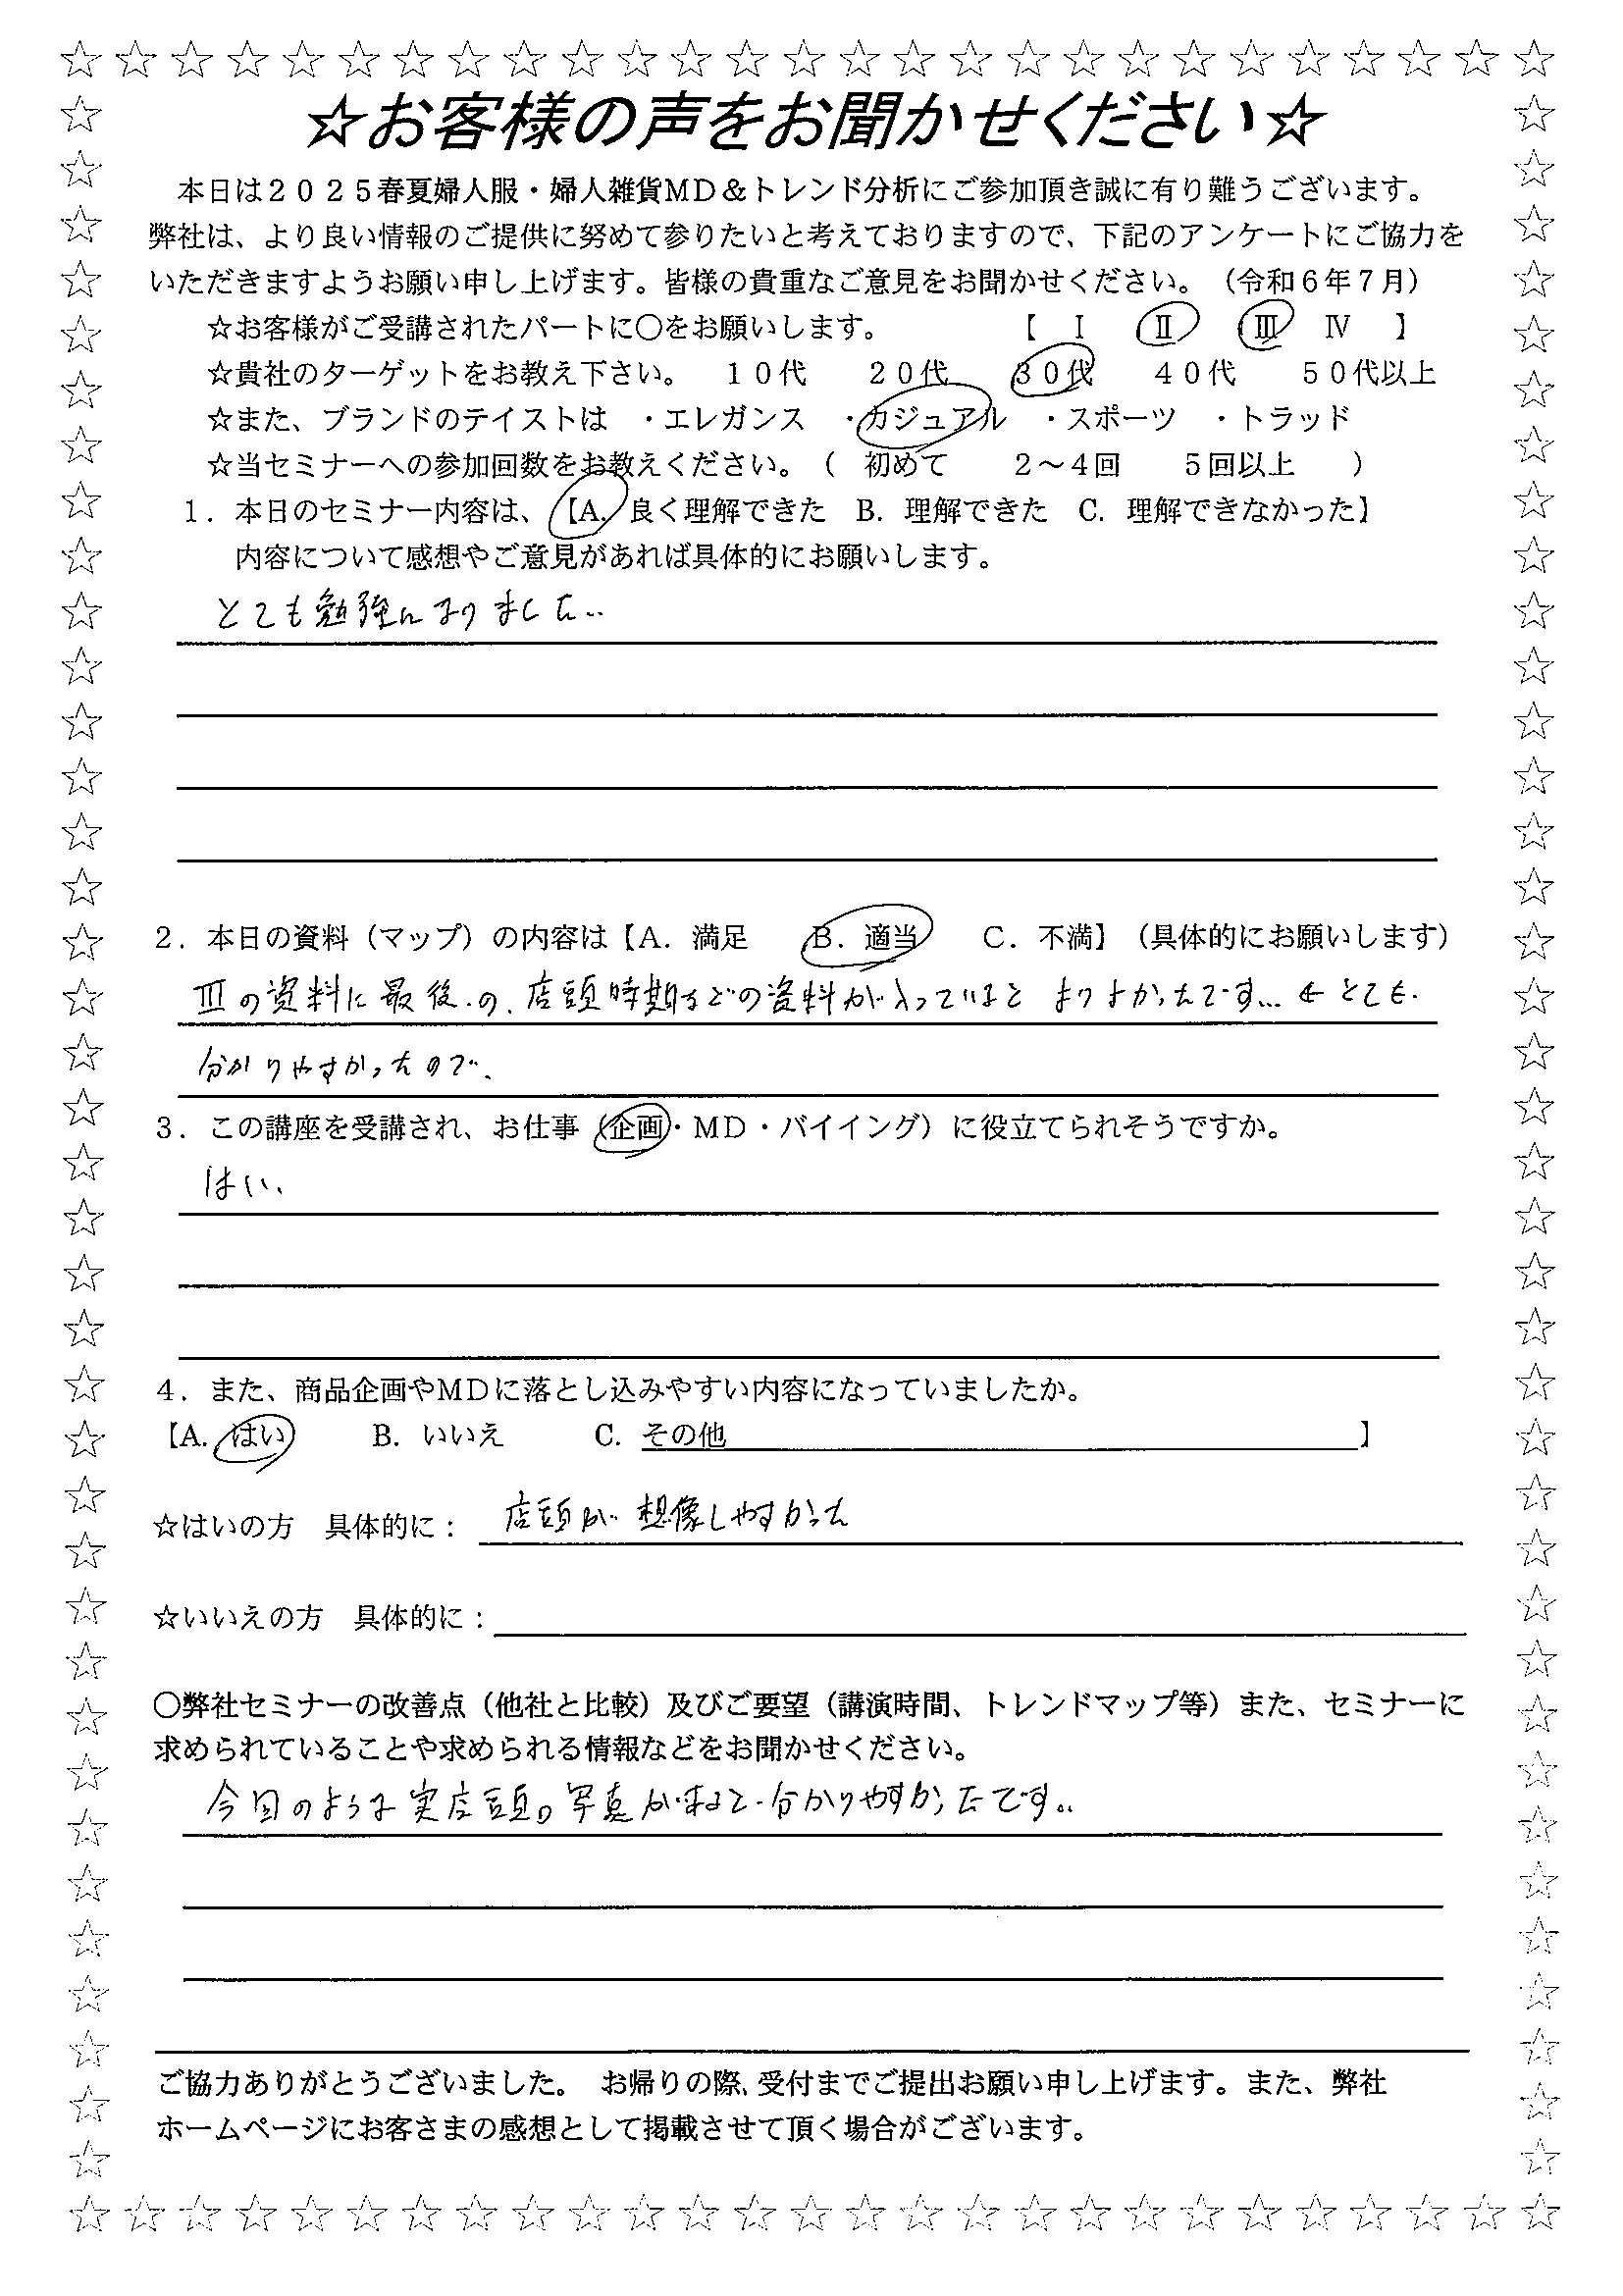 ☆お客様の声をお聞かせください☆
本日は２０２５春夏婦人服・婦人雑貨MD＆トレンド分析にご参加頂き誠に有り難うございます。
弊社は、より良い情報のご提供に努めて参りたいと考えておりますので、下記のアンケートにご協力を
いただきますようお願い申し上げます。皆様の貴重なご意見をお聞かせください。（令和６年７月）
☆お客様がご受講されたパートに〇をお願いします。　【　Ⅰ　Ⅱ　Ⅲ　Ⅳ　】
☆貴社のターゲットをお教え下さい。　１０代　２０代　３０代　４０代　５０代以上
☆また、ブランドのテイストは　・エレガンス　・カジュアル　・スポーツ　・トラッド
☆当セミナーへの参加回数をお教えください。（　初めて　２～４回　５回以上　）
１．本日のセミナー内容は、【A. 良く理解できた　B. 理解できた　C. 理解できなかった】
内容について感想やご意見があれば具体的にお願いします。
とても勉強になりました..
２．本日の資料（マップ）の内容は【A．満足　B．適当　C．不満】（具体的にお願いします）
Ⅲの資料に最後の、店頭時期などの資料が入っていると よりよかったです... ← とても
分かりやすかったので、
３．この講座を受講され、お仕事（企画・MD・バイイング）に役立てられそうですか。
はい、
４．また、商品企画やMDに落とし込みやすい内容になっていましたか。
【A. はい　B. いいえ　C. その他　】
☆はいの方　具体的に： 店頭が想像しやすかった
☆いいえの方　具体的に：
〇弊社セミナーの改善点（他社と比較）及びご要望（講演時間、トレンドマップ等）また、セミナーに
求められていることや求められる情報などをお聞かせください。
今回のような実店頭の写真があると分かりやすかったです..
ご協力ありがとうございました。　お帰りの際、受付までご提出お願い申し上げます。また、弊社
ホームページにお客さまの感想として掲載させて頂く場合がございます。